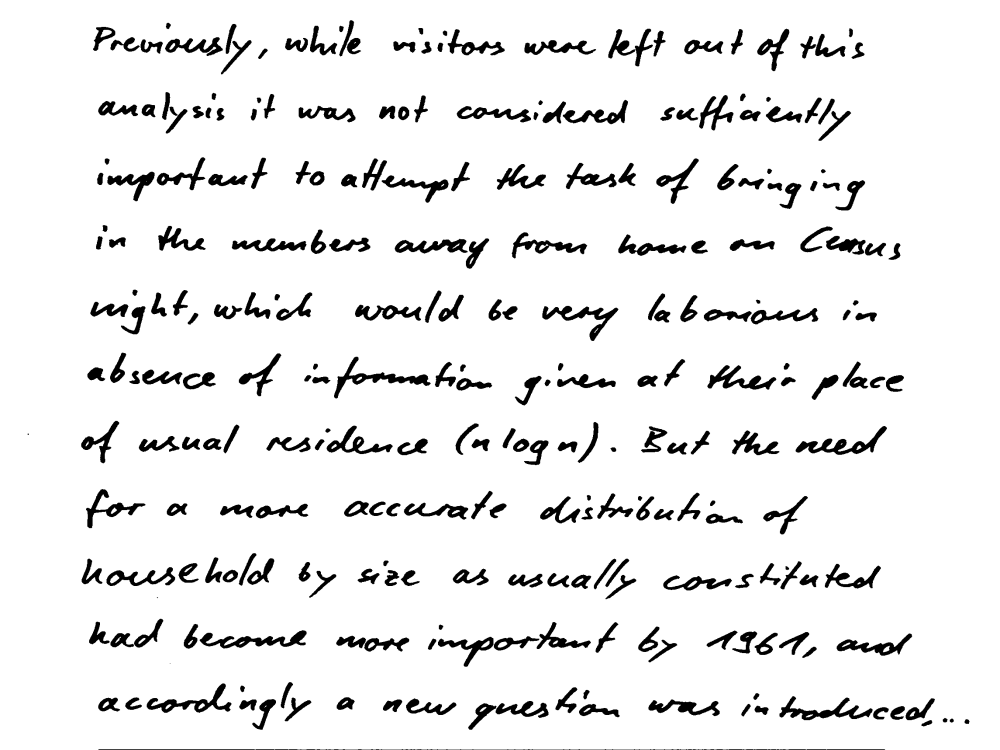 Previously, while visitors were left out of this
analysis it was not considered sufficiently
important to attempt the task of bringing
in the members away from home on Census
night, which would be very laborious in
absence of information given at their place
of usual residence (n log n). But the need
for a more accurate distribution of
household by size as usually constituted
had become more important by 1961, and
accordingly a new question was introduced,...